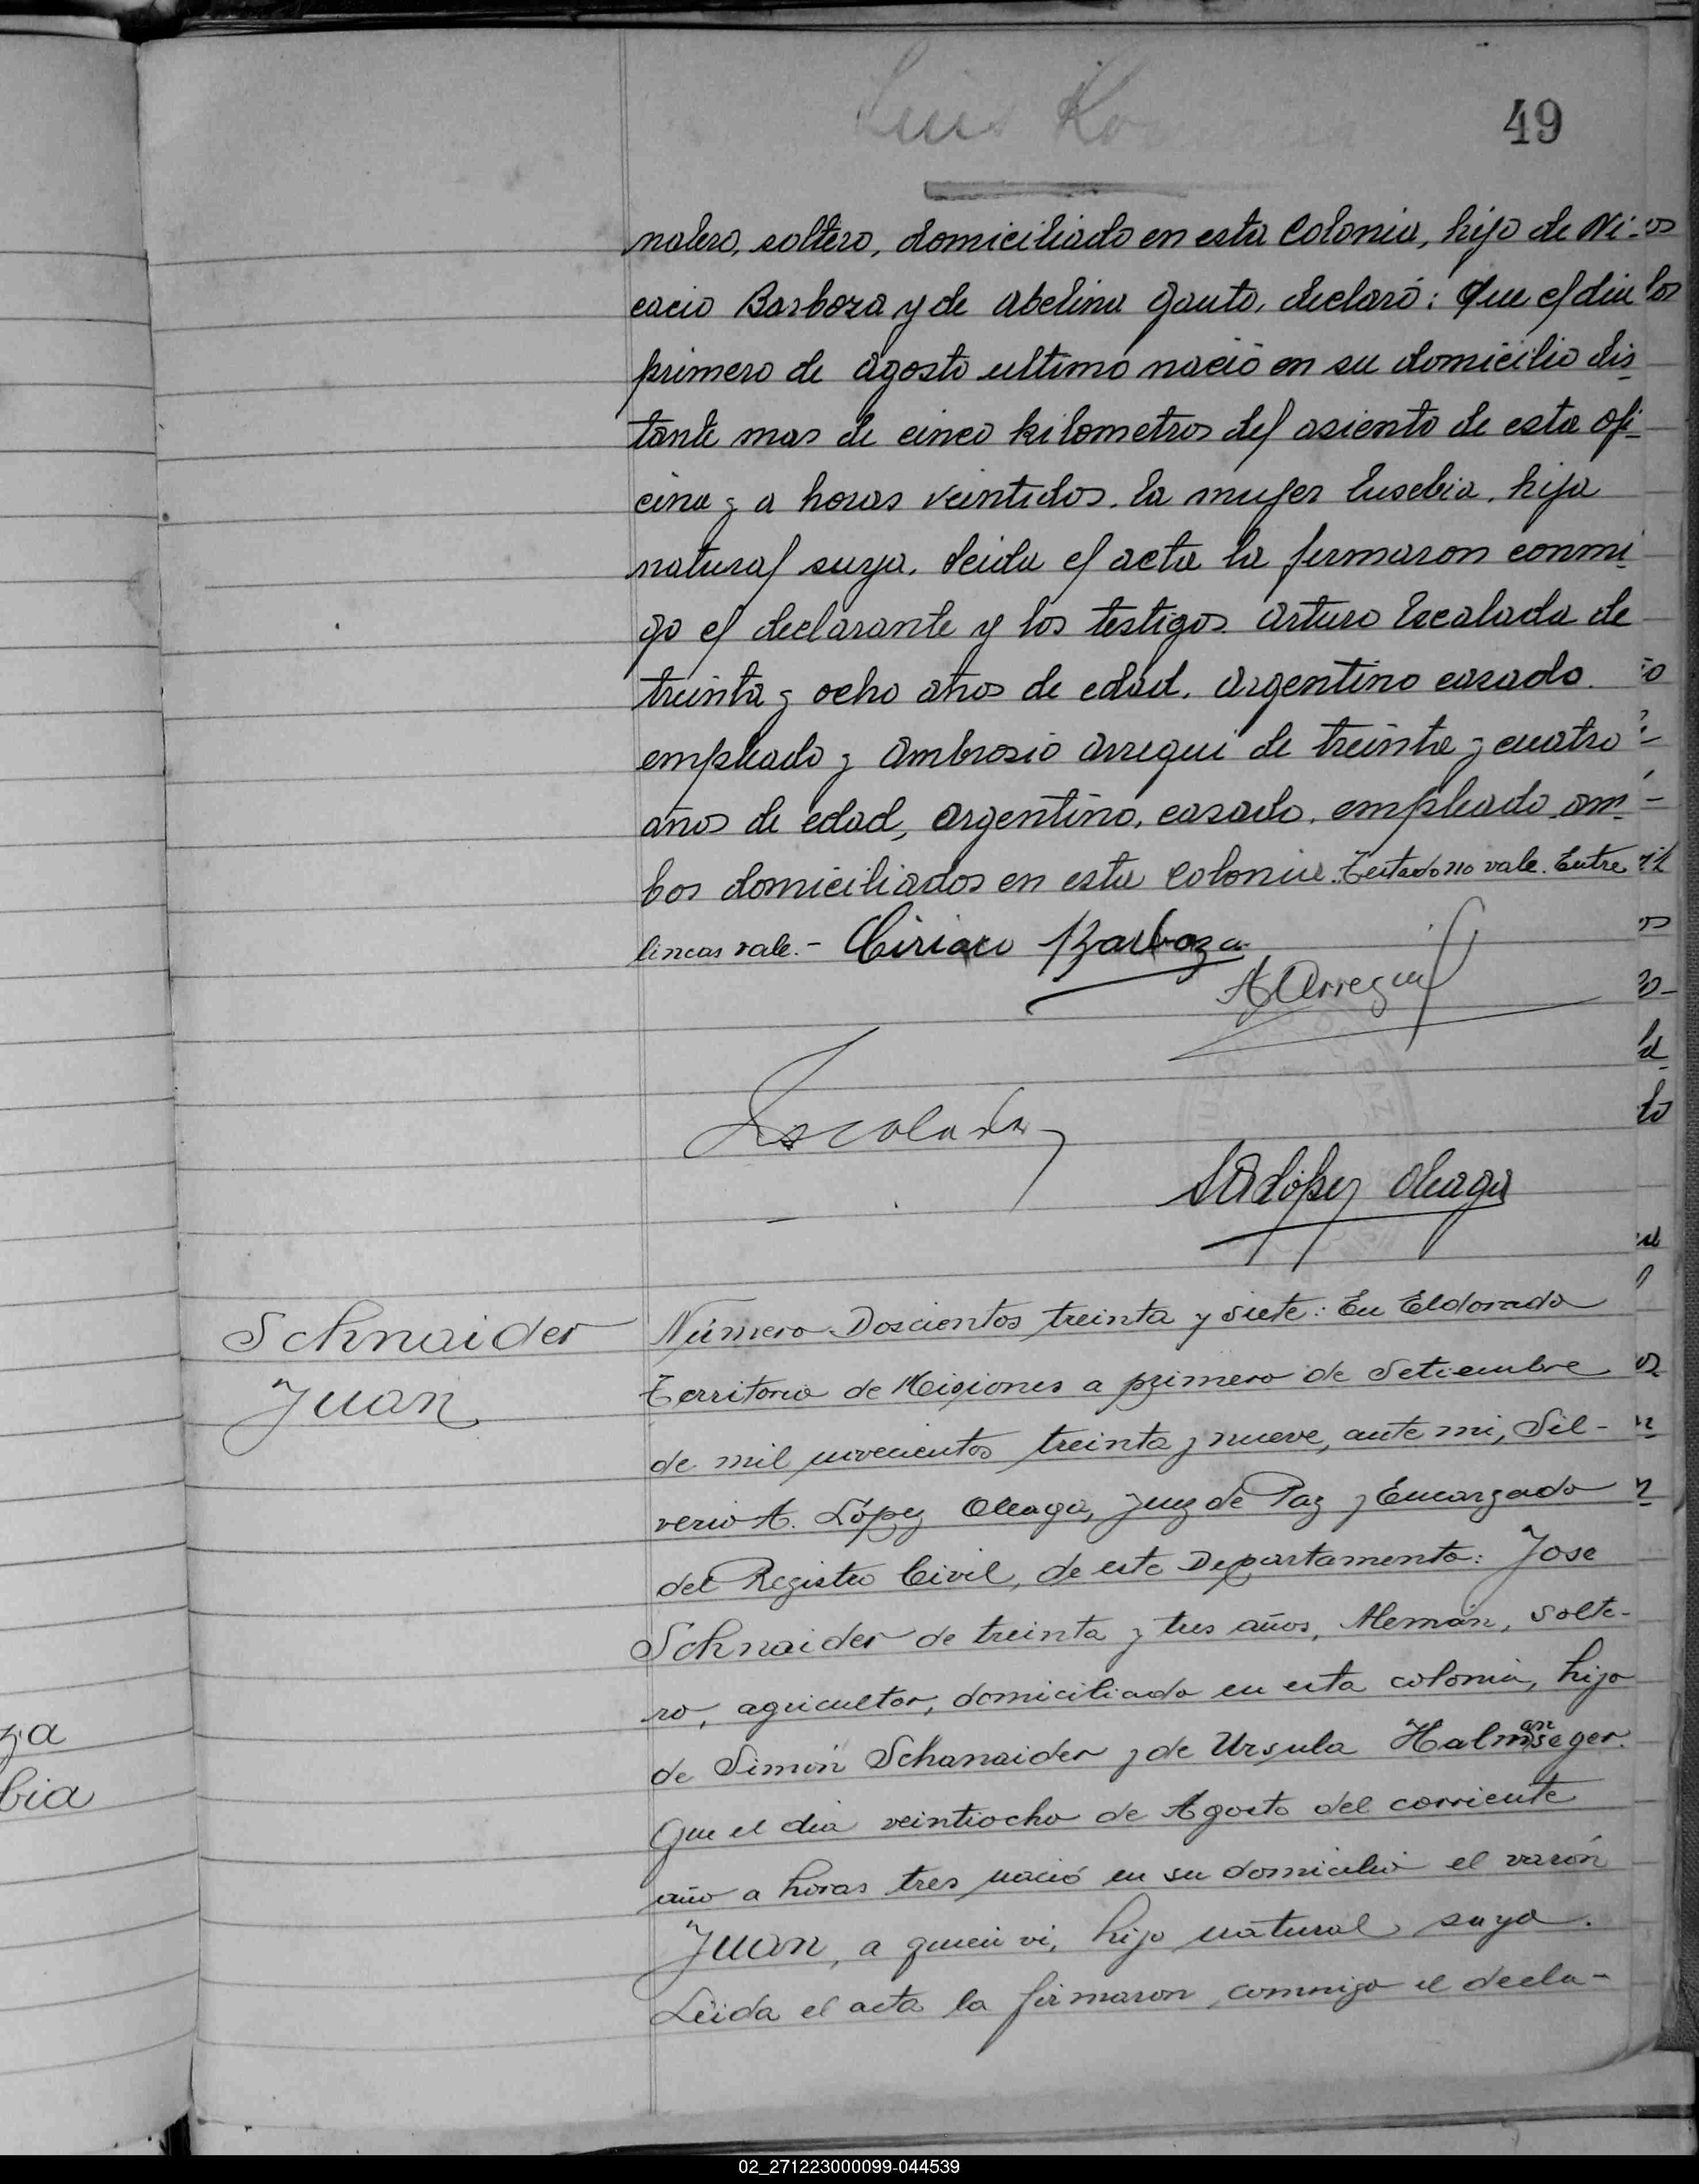 Luis
49
nalero, soltero, domiciliado en esta Colonia, hijo de Ni-
cacio Barboza y de Abelina Gauto, declaró: Que el dia
primero de Agosto ultimo nació en su domicilio dis
tante mas de cinco kilometros del asiento de esta ofi
cina y a horas veintidos. la mujer Eusebia. hija
natural suya. Leida el acta la firmaron conmi
go el declarante y los testigos Arturo Escalada de
treinta y ocho años de edad. Argentino casado.
empleado y Ambrosio Arregui de treinta y cuatro
años de edad, Argentino, casado. empleado am
bos domiciliados en esta Colonia. Testado no vale. Entre
lineas vale.- Ciriaco Barboza
A Arregui
Escalada
SA López Oleaga
Schnaider
Juan
Número Doscientos treinta y siete: En Eldorado
Territorio de Misiones a primero de Setiembre
de mil novecientos treinta y nueve, ante mi, Sil-
verio A. López Oleaga, Juez de Paz y Encargado
del Registro Civil, de este Departamento: Jose
Schnaider de treinta y tres años, Alemán, solte-
ro, agricultor, domiciliado en esta colonia, hijo
de Simón Schanaider y de Ursula
Que el dia veintiocho de Agosto del corriente
año a horas tres nació en su domicilio el varón
Juan, a quien vi, hijo natural suyo.
Leida el acta la firmaron conmigo el decla-
za
bia
02_271223000099-044539